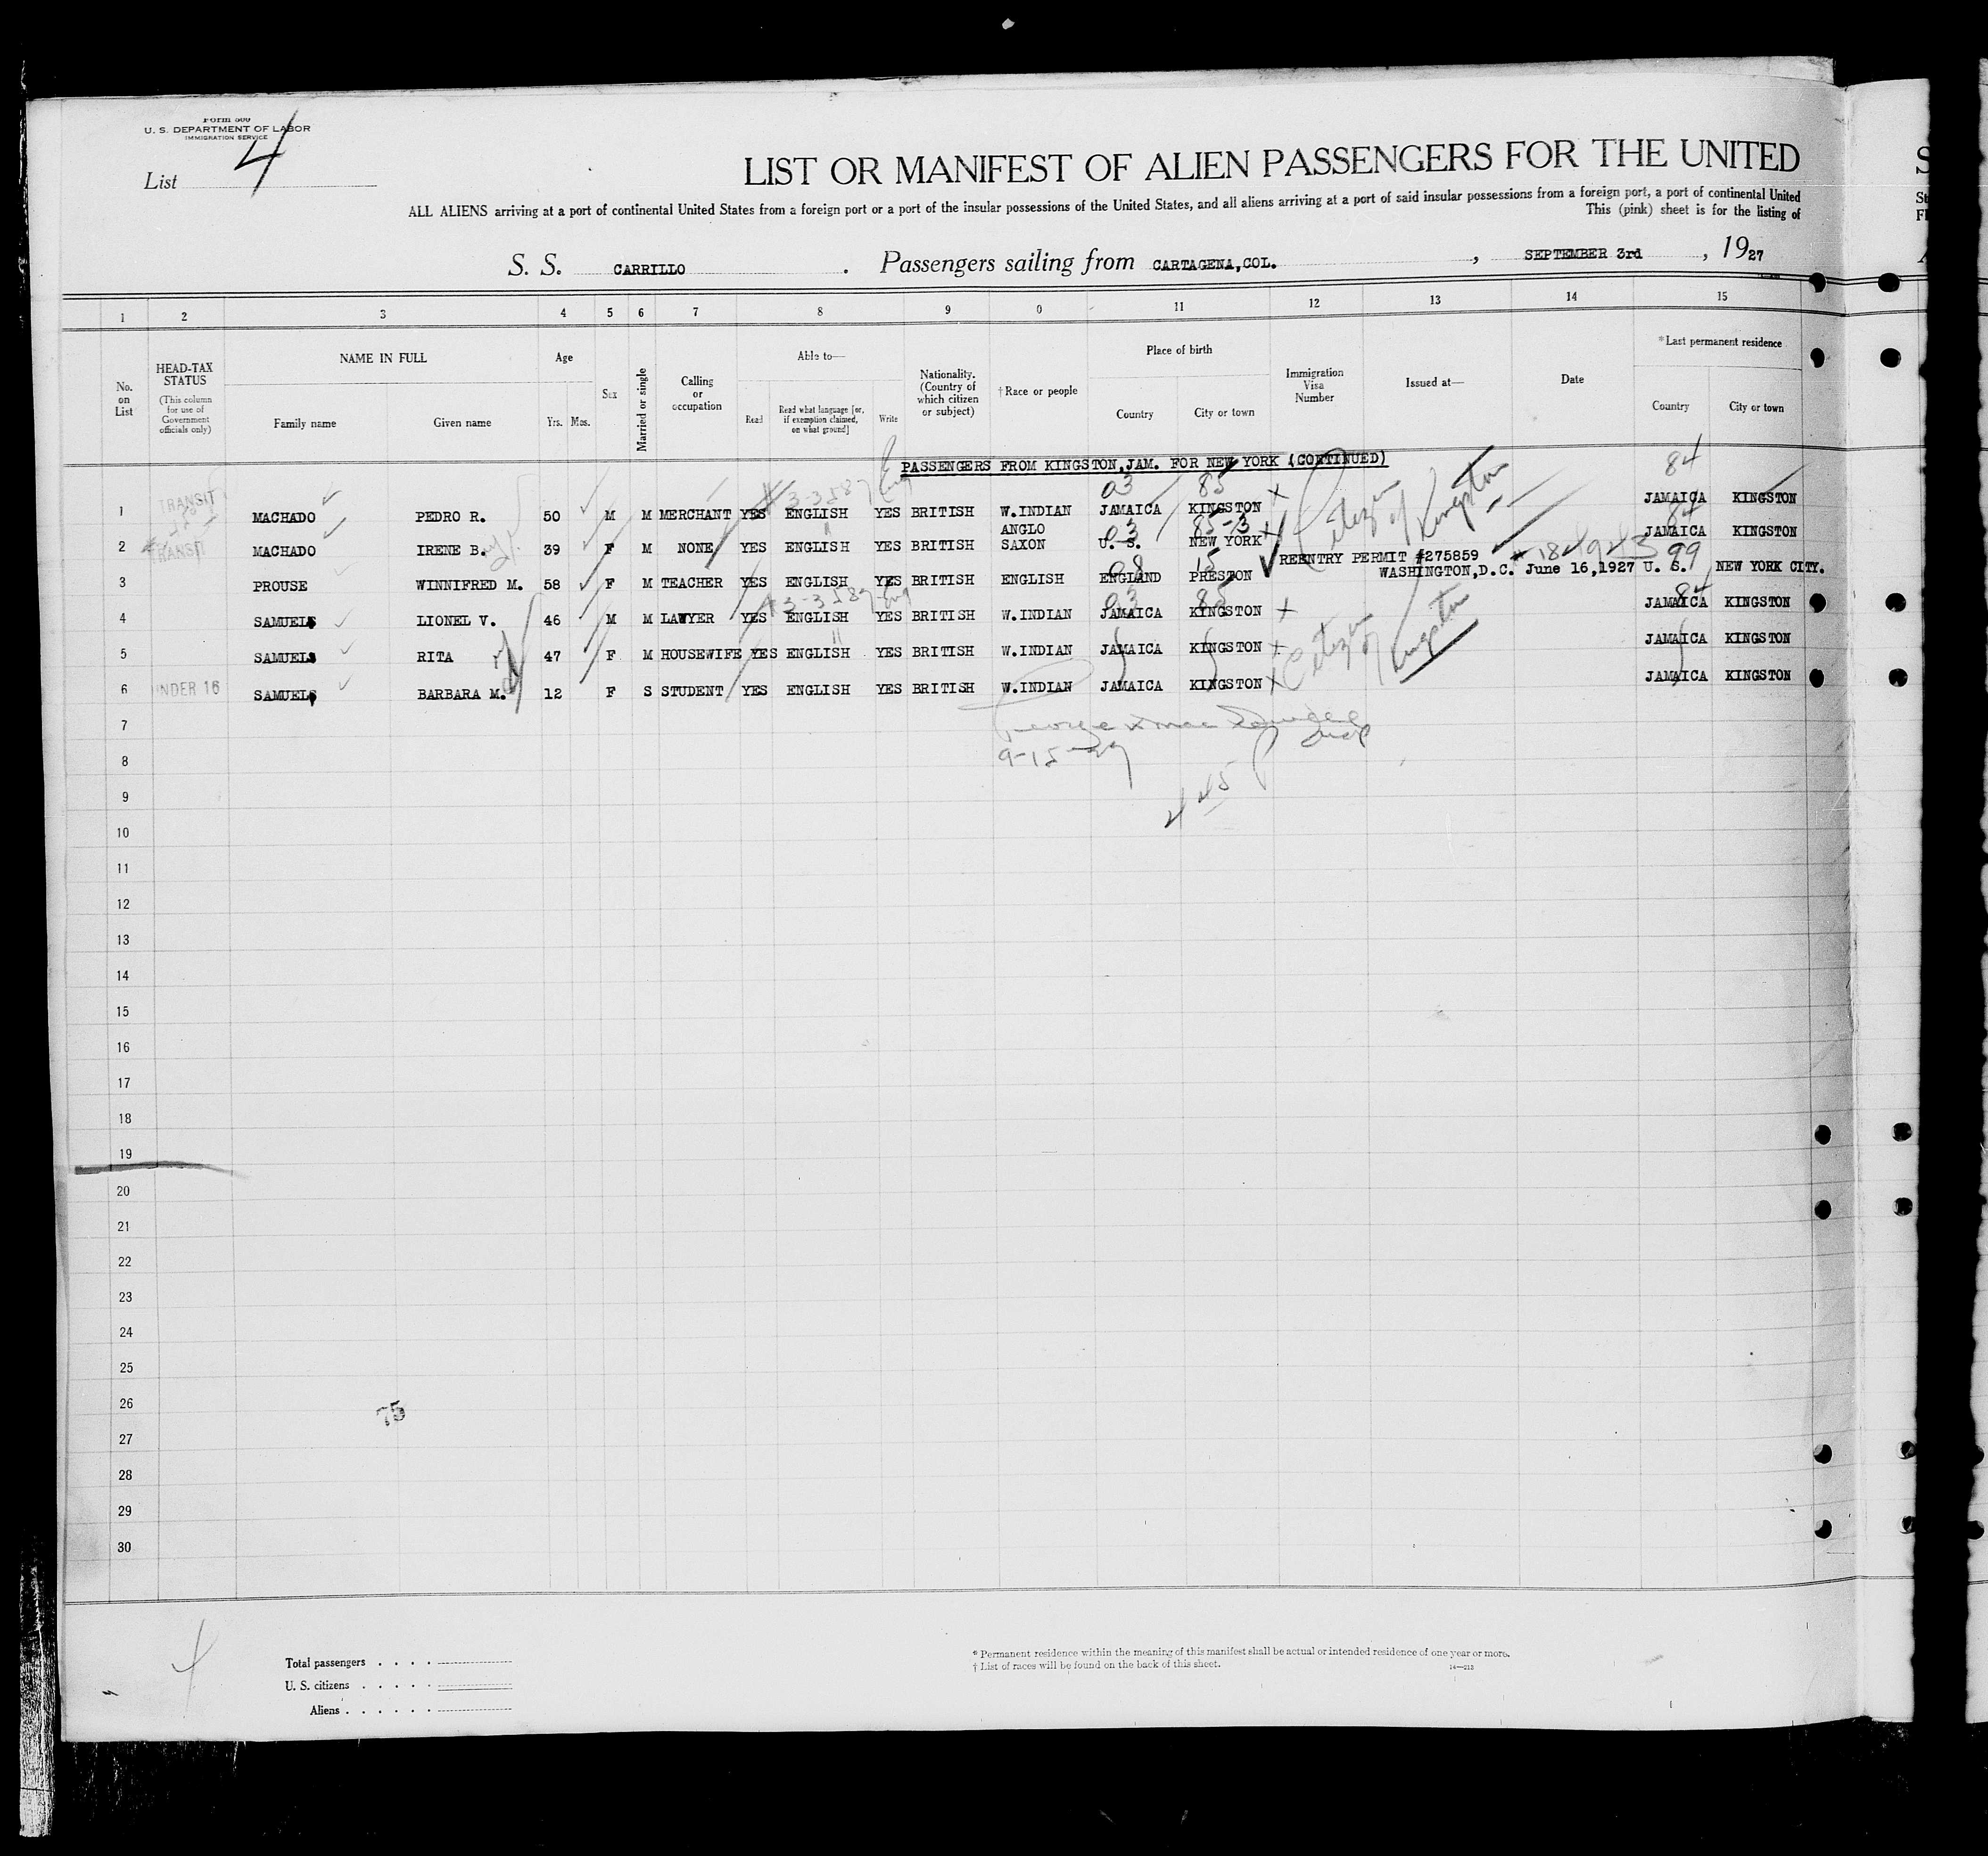 Form 500
U. S. DEPARTMENT OF LABOR
IMMIGRATION SERVICE
List 4
LIST OR MANIFEST OF ALIEN PASSENGERS FOR THE UNITED
ALL ALIENS arriving at a port of continental United States from a foreign port or a port of the insular possessions of the United States, and all aliens arriving at a port of said insular possessions from a foreign port, a port of continental United
This (pink) sheet is for the listing of
S. S. CARRILLO . Passengers sailing from CARTAGENA,COL. , SEPTEMBER 3rd , 1927
1 2 3 4 5 6 7 8 9 0 11 12 13 14 15
No. on List
HEAD-TAX STATUS (This column for use of Government officials only)
NAME IN FULL
Family name Given name
Age
Yrs. Mos.
Sex
Married or single
Calling or occupation
Able to—
Read
Read what language [or, if exemption claimed, on what ground]
Write
Nationality. (Country of which citizen or subject)
†Race or people
Place of birth
Country City or town
Immigration Visa Number
Issued at—
Date
*Last permanent residence
Country City or town
PASSENGERS FROM KINGSTON,JAM. FOR NEW YORK (CONTINUED)
03 85 84
1 TRANSIT MACHADO PEDRO R. 50 M M MERCHANT YES ENGLISH YES BRITISH W.INDIAN JAMAICA KINGSTON Citizen of Kingston JAMAICA KINGSTON
03 85-3 84
2 TRANSIT MACHADO IRENE B. 39 F M NONE YES ENGLISH YES BRITISH ANGLO SAXON U. S. NEW YORK JAMAICA KINGSTON
08 15 99
3 PROUSE WINNIFRED M. 58 F M TEACHER YES ENGLISH YES BRITISH ENGLISH ENGLAND PRESTON REENTRY PERMIT #275859 WASHINGTON,D.C. June 16,1927 U. S. NEW YORK CITY.
03 85 84
4 SAMUELS LIONEL V. 46 M M LAWYER YES ENGLISH YES BRITISH W.INDIAN JAMAICA KINGSTON JAMAICA KINGSTON
5 SAMUELS RITA 47 F M HOUSEWIFE YES ENGLISH YES BRITISH W.INDIAN JAMAICA KINGSTON Citizen of Kingston JAMAICA KINGSTON
6 UNDER 16 SAMUELS BARBARA M. 12 F S STUDENT YES ENGLISH YES BRITISH W.INDIAN JAMAICA KINGSTON JAMAICA KINGSTON
7
8
9
10
11
12
13
14
15
16
17
18
19
20
21
22
23
24
25
26
75
27
28
29
30
Total passengers
U. S. citizens
Aliens
* Permanent residence within the meaning of this manifest shall be actual or intended residence of one year or more.
† List of races will be found on the back of this sheet.
14—213